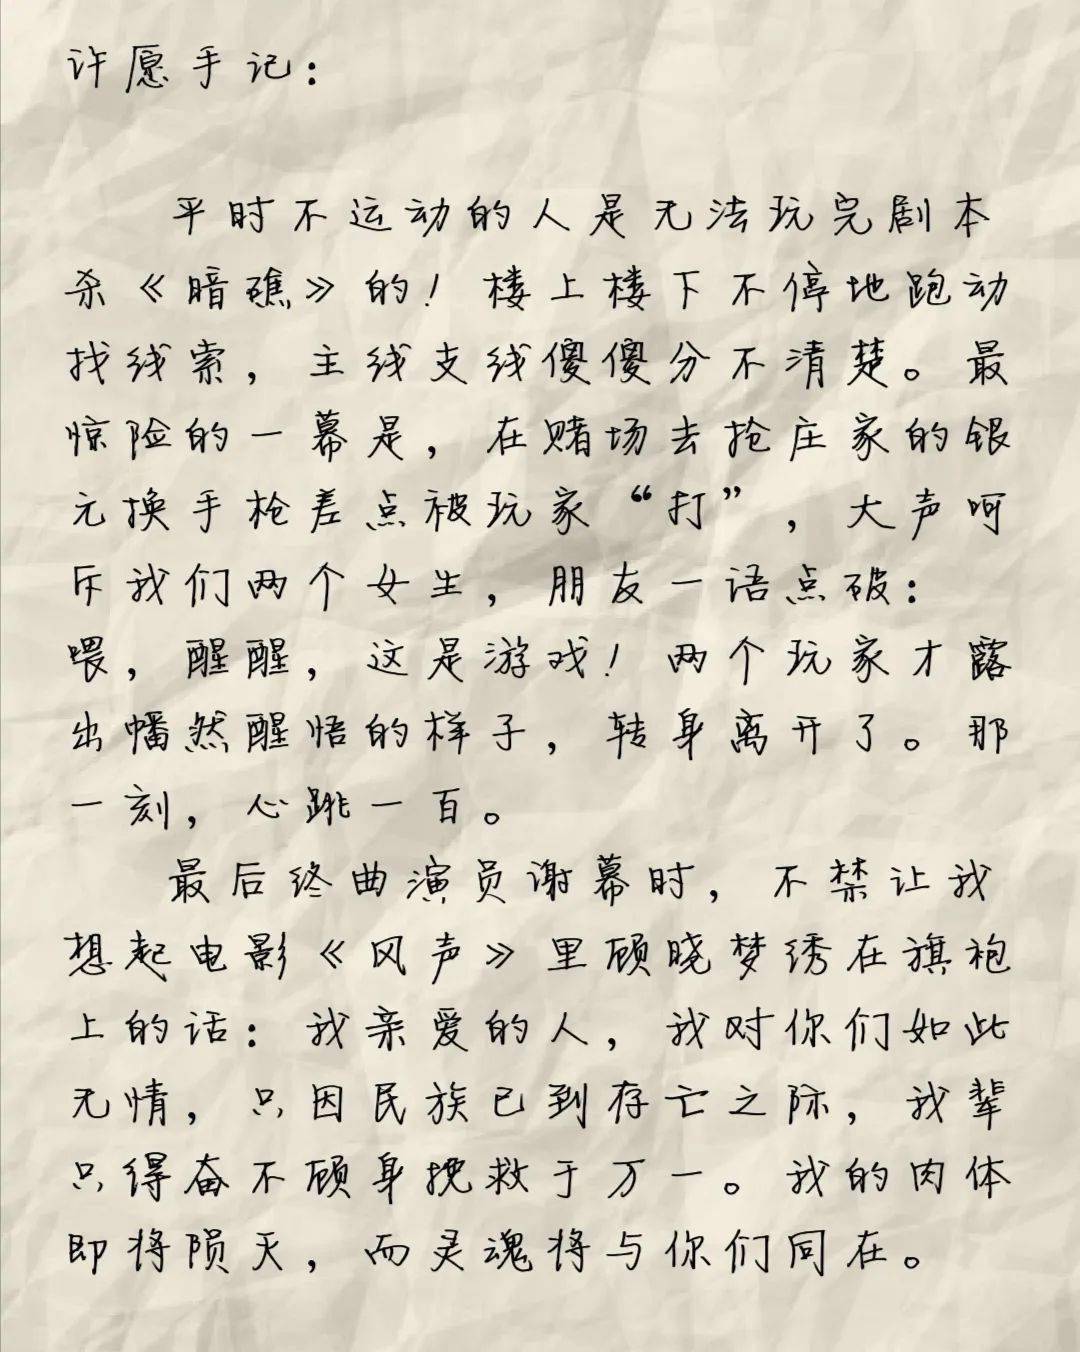 许愿手记：
平时不运动的人是无法玩完剧本
杀《暗礁》的！楼上楼下不停地跑动
找线索，主线支线傻傻分不清楚。最
惊险的一幕是，在赌场去抢庄家的银
元换手枪差点被玩家“打”，大声呵
斥我们两个女生，朋友一语点破：
喂，醒醒，这是游戏！两个玩家才露
出幡然醒悟的样子，转身离开了。那
一刻，心跳一百。
最后终曲演员谢幕时，不禁让我
想起电影《风声》里顾晓梦绣在旗袍
上的话：我亲爱的人，我对你们如此
无情，只因民族已到存亡之际，我辈
只得奋不顾身挽救于万一。我的肉体
即将陨灭，而灵魂将与你们同在。